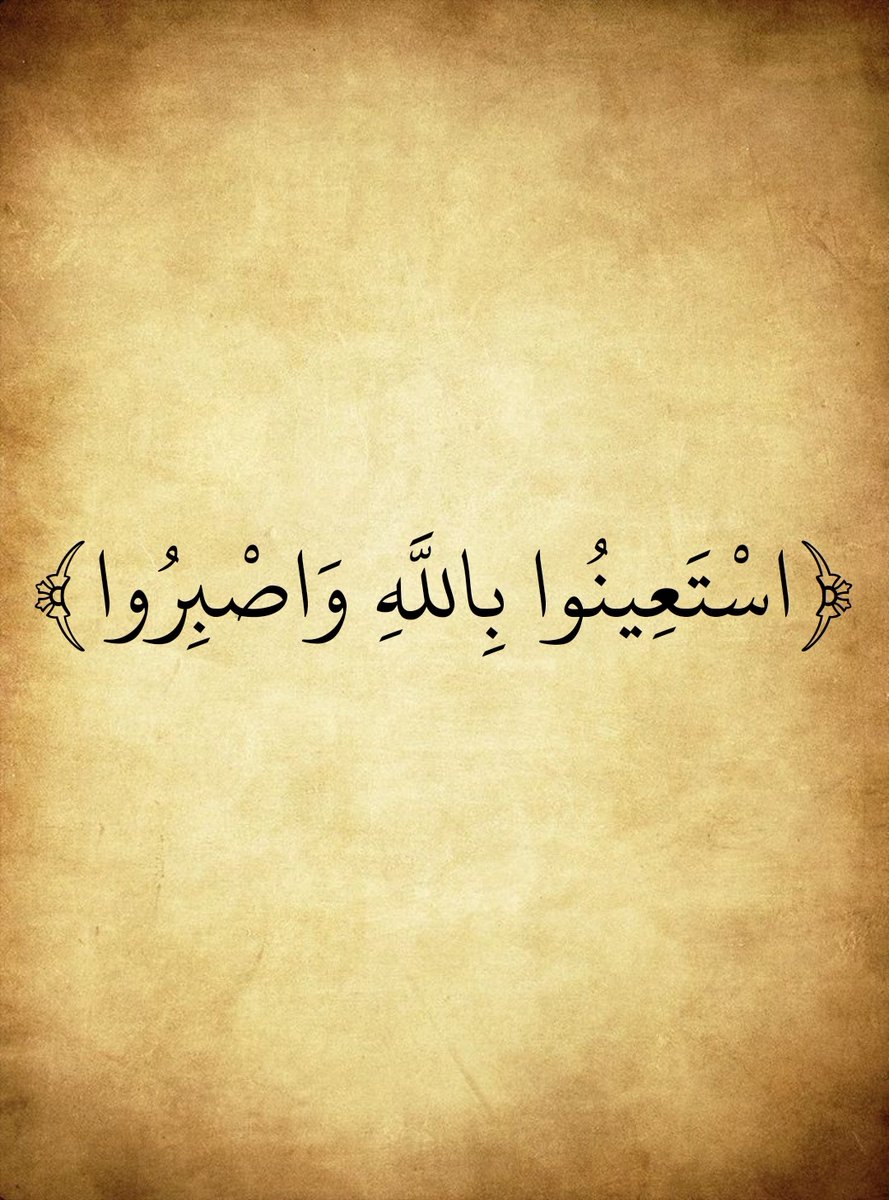 ﴿ اسْتَعِينُوا بِاللَّهِ وَاصْبِرُوا ﴾